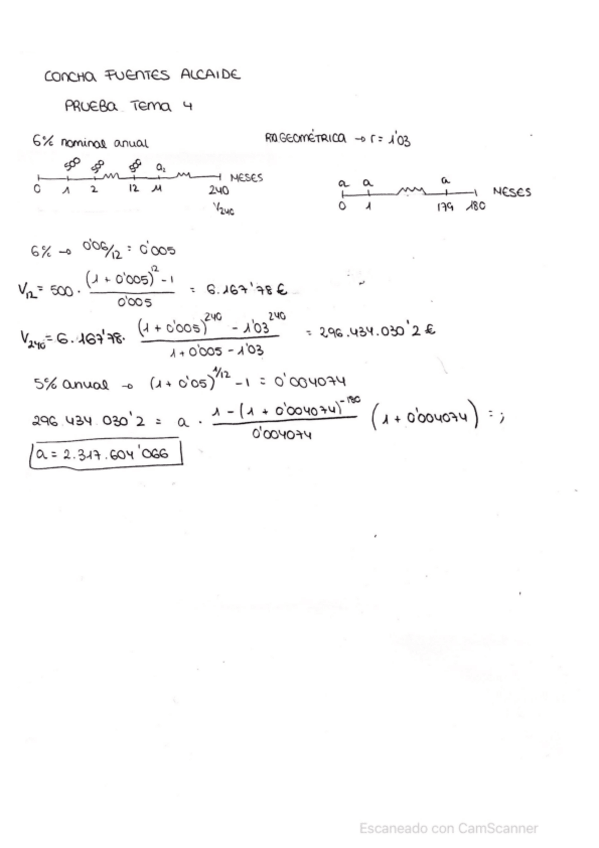 CONCHA FUENTES ALCAIDE
PRUEBA TEMA 4
6% nominal anual
R.A GEOMÉTRICA → r = 1'03
500 500 500 a₂
0 1 2 12 11 240 MESES
V240
a a a
0 1 179 180 MESES
6% → 0'06/12 = 0'005
V12 = 500 · ((1 + 0'005)^12 - 1) / 0'005 = 6.167'78 €
V240 = 6.167'78 · ((1 + 0'005)^240 - 1'03^240) / (1 + 0'005 - 1'03) = 296.434.030'2 €
5% anual → (1 + 0'05)^1/12 - 1 = 0'004074
296.434.030'2 = a · (1 - (1 + 0'004074)^-180) / 0'004074 (1 + 0'004074) = ;
a = 2.317.604'066
Escaneado con CamScanner